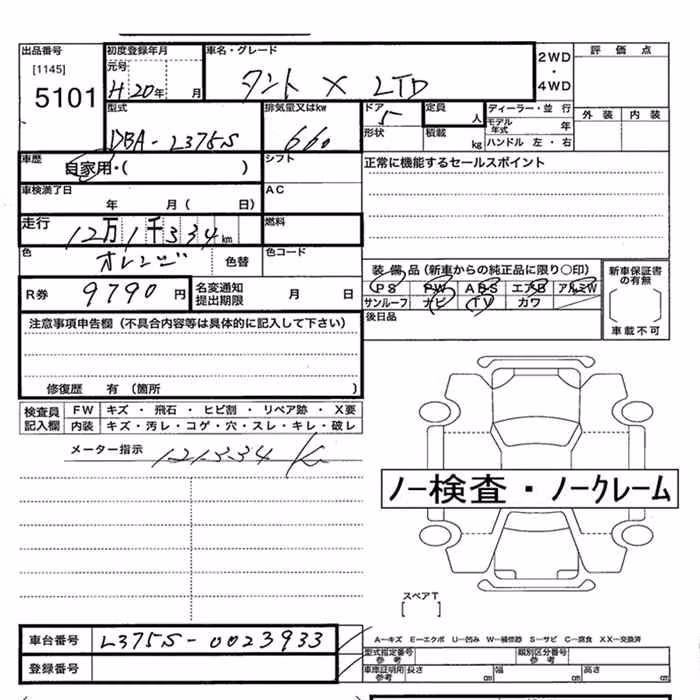 出品番号 初度登録年月 車名・グレード 2WD・4WD 評価点
[1145] 元号
5101 H20年 月 タント X LTD
型式 排気量又はkw ドア 定員 ディーラー・並行 外装 内装
DBA-L375S 660 5 人 モデル年式 年
形状 積載 kg ハンドル 左・右
車歴 自家用・( ) シフト 正常に機能するセールスポイント
車検満了日 AC
年 月( 日)
走行 12万1千334km 燃料
色 オレンジ 色替 色コード
装備品(新車からの純正品に限り○印) 新車保証書の有無
R券 9790円 名変通知提出期限 月 日 PS PW ABS エアB アルミW
サンルーフ ナビ TV カワ
注意事項申告欄(不具合内容等は具体的に記入して下さい) 後日品 車載不可
修復歴 有(箇所 )
検査員記入欄 FW キズ・飛石・ヒビ割・リペア跡・X要
内装 キズ・汚レ・コゲ・穴・スレ・キレ・破レ
メーター指示 121334 K
ノー検査・ノークレーム
スペアT
[ ]
車台番号 L375S-0023933 A―キズ E―エクボ U―凹み W―補修跡 S―サビ C―腐食 XX―交換済
型式指定番号 参考 類別区分番号 参考
登録番号 車庫証明用 参考 長さ cm 幅 cm 高さ cm